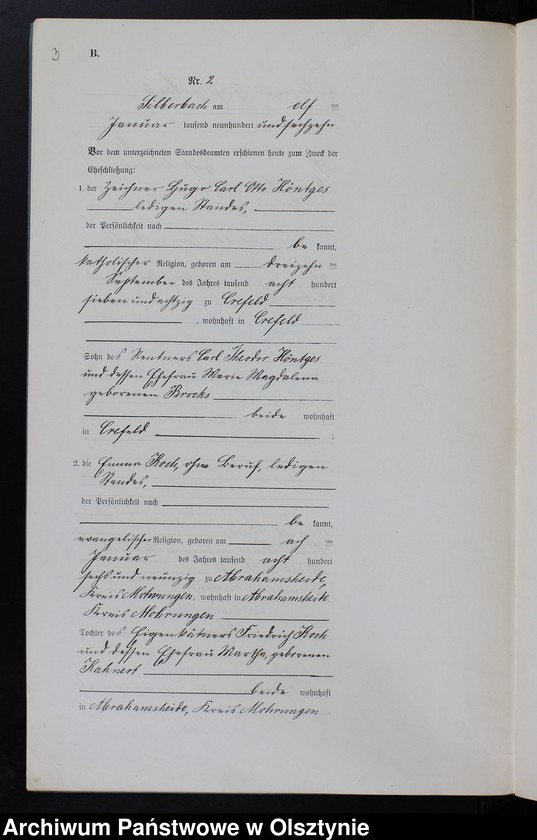 3
B.
Nr. 2
Silberbach am elf ten
Januar tausend neunhundert und sechzehn
Vor dem unterzeichneten Standesbeamten erschienen heute zum Zweck der
Eheschließung:
1. der Zeichner Hugo Carl Otto Höntges
ledigen Standes,
der Persönlichkeit nach
be kannt,
katholischer Religion, geboren am dreizehn ten
September des Jahres tausend acht hundert
sieben und achtzig zu Crefeld
, wohnhaft in Crefeld
Sohn des Rentners Carl Theodor Höntges
und dessen Ehefrau Marie Magdalena
geborenen Brocks
beide wohnhaft
in Crefeld ;
2. die Emma Koch, ohne Beruf, ledigen
Standes,
der Persönlichkeit nach
be kannt,
evangelischer Religion, geboren am ach ten
Januar des Jahres tausend acht hundert
sechs und neunzig zu Abrahamsheide,
Kreis Mohrungen, wohnhaft in Abrahamsheide
Kreis Mohrungen
Tochter des Eigenkätners Friedrich Koch
und dessen Ehefrau Martha, geborenen
Kahnert
beide wohnhaft
in Abrahamsheide, Kreis Mohrungen
Archiwum Państwowe w Olsztynie